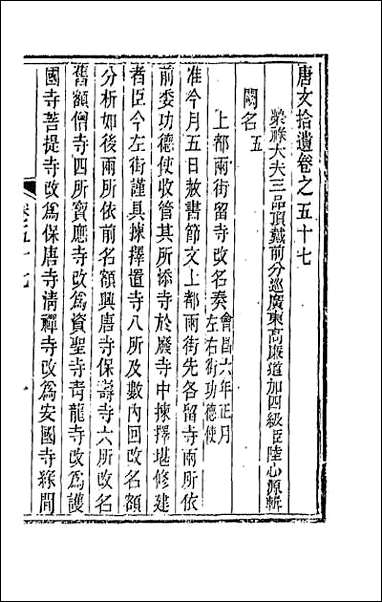 唐文拾遺卷之五十七
榮祿大夫三品頂戴前分巡廣東高廉道加四級臣陸心源輯
闕名五
上都兩街留寺改名奏會昌六年正月
左右街功德使
准今月五日赦書節文上都兩街先各留寺兩所依
前委功德使收管其所添寺於廢寺中揀擇堪修建
者臣今左街謹具揀擇置寺八所及數內回改名額
分析如後兩所依前名額興唐寺保壽寺六所改名
舊額僧寺四所寶應寺改爲資聖寺青龍寺改爲護
國寺菩提寺改爲保唐寺淸禪寺改爲安國寺緣間
卷五十七
一